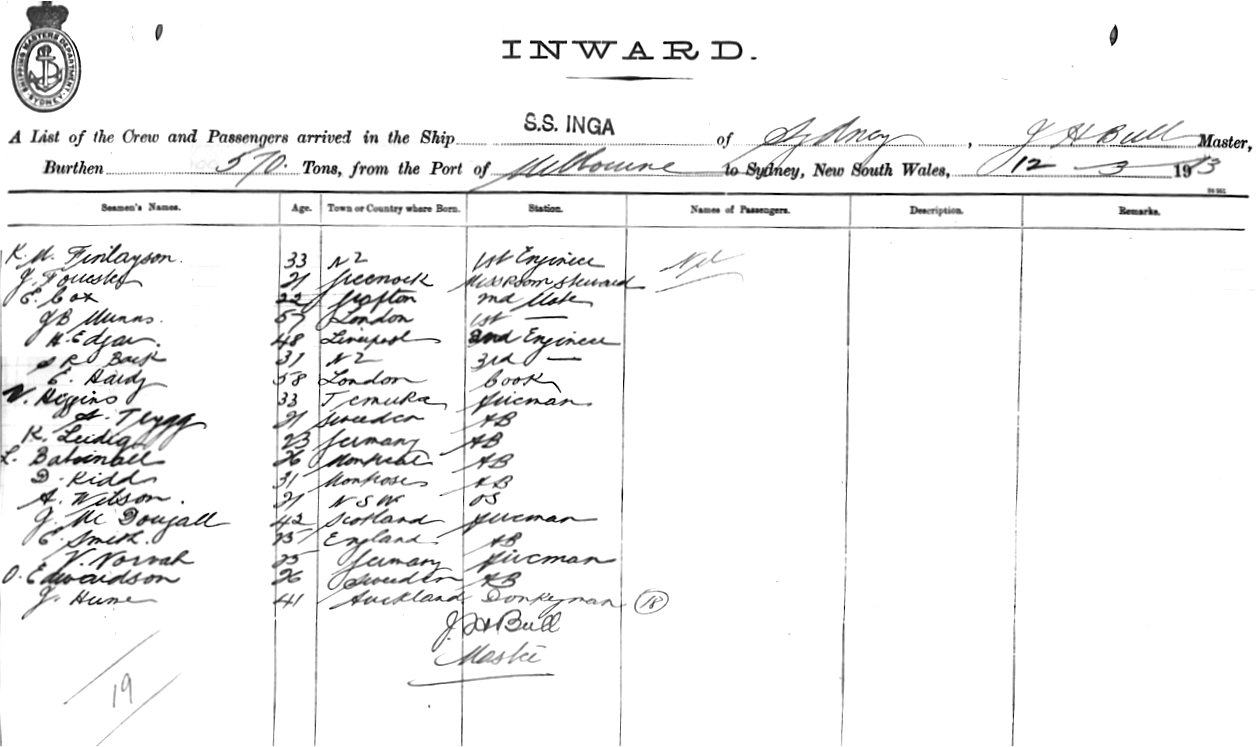 SHIPPING MASTERS DEPARTMENT SYDNEY
INWARD.
A List of the Crew and Passengers arrived in the Ship S.S. INGA of Sydney, J H Bull Master,
Burthen 570. Tons, from the Port of Melbourne to Sydney, New South Wales, 12 - 3 - 1913
Seamen's Names. Age. Town or Country where Born. Station. Names of Passengers. Description. Remarks.
K. M. Finlayson. 33 NZ 1st Engineer Nil
J. 21 Greenock Messroom Steward
E. Cox 22 Grafton 2nd Mate
J B Munns. 57 London 1st —
H. Edgar. 48 Liverpool 2nd Engineer
S R 31 NZ 3rd —
E. Hardy 58 London Cook
Higgins 33 Temuka Fireman
A. Trygg 21 Sweden AB
K. Leidig 23 Germany AB
L. 26 Montreal AB
D. Kidd 31 Montrose AB
A. Wilson. 21 NSW OS
J. Mc Dougall 42 Scotland Fireman
E. Smith. 25 England AB
V. Novak 35 Germany Fireman
O. Edwardson 26 Sweden AB
J. Hume 41 Auckland Donkeyman 18
J. H Bull
Master
19